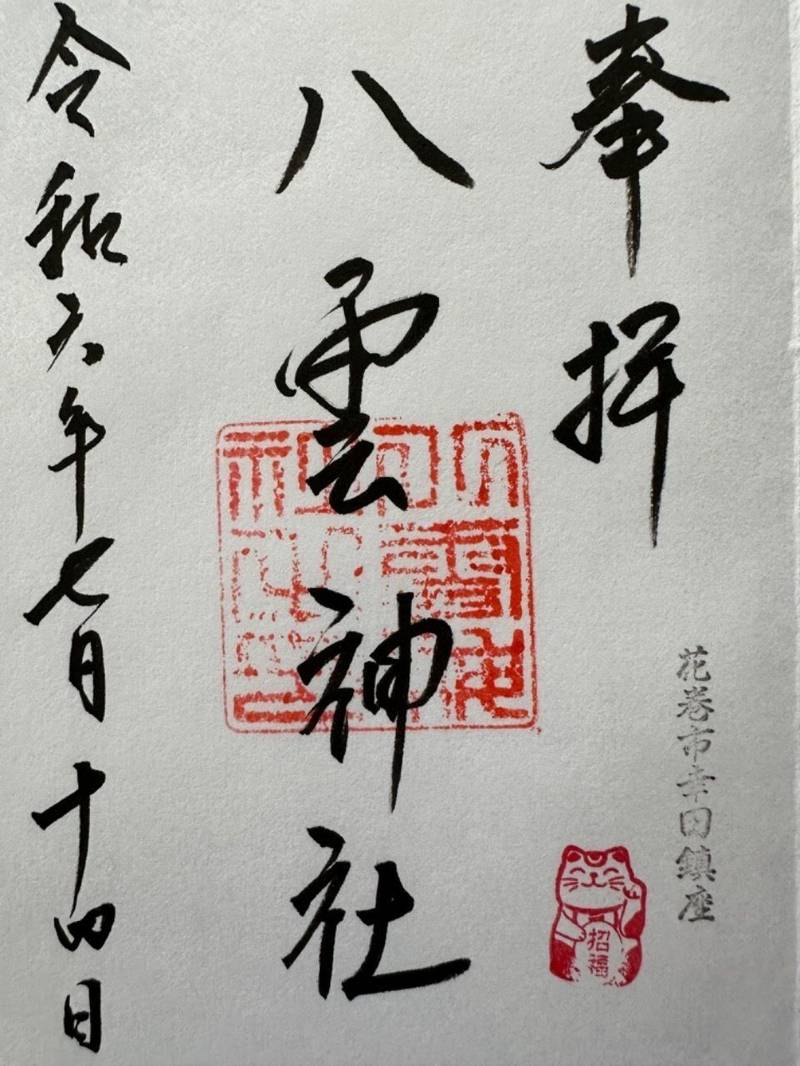 奉拝
八雲神社
令和六年七月十四日
花巻市幸田鎮座
招福